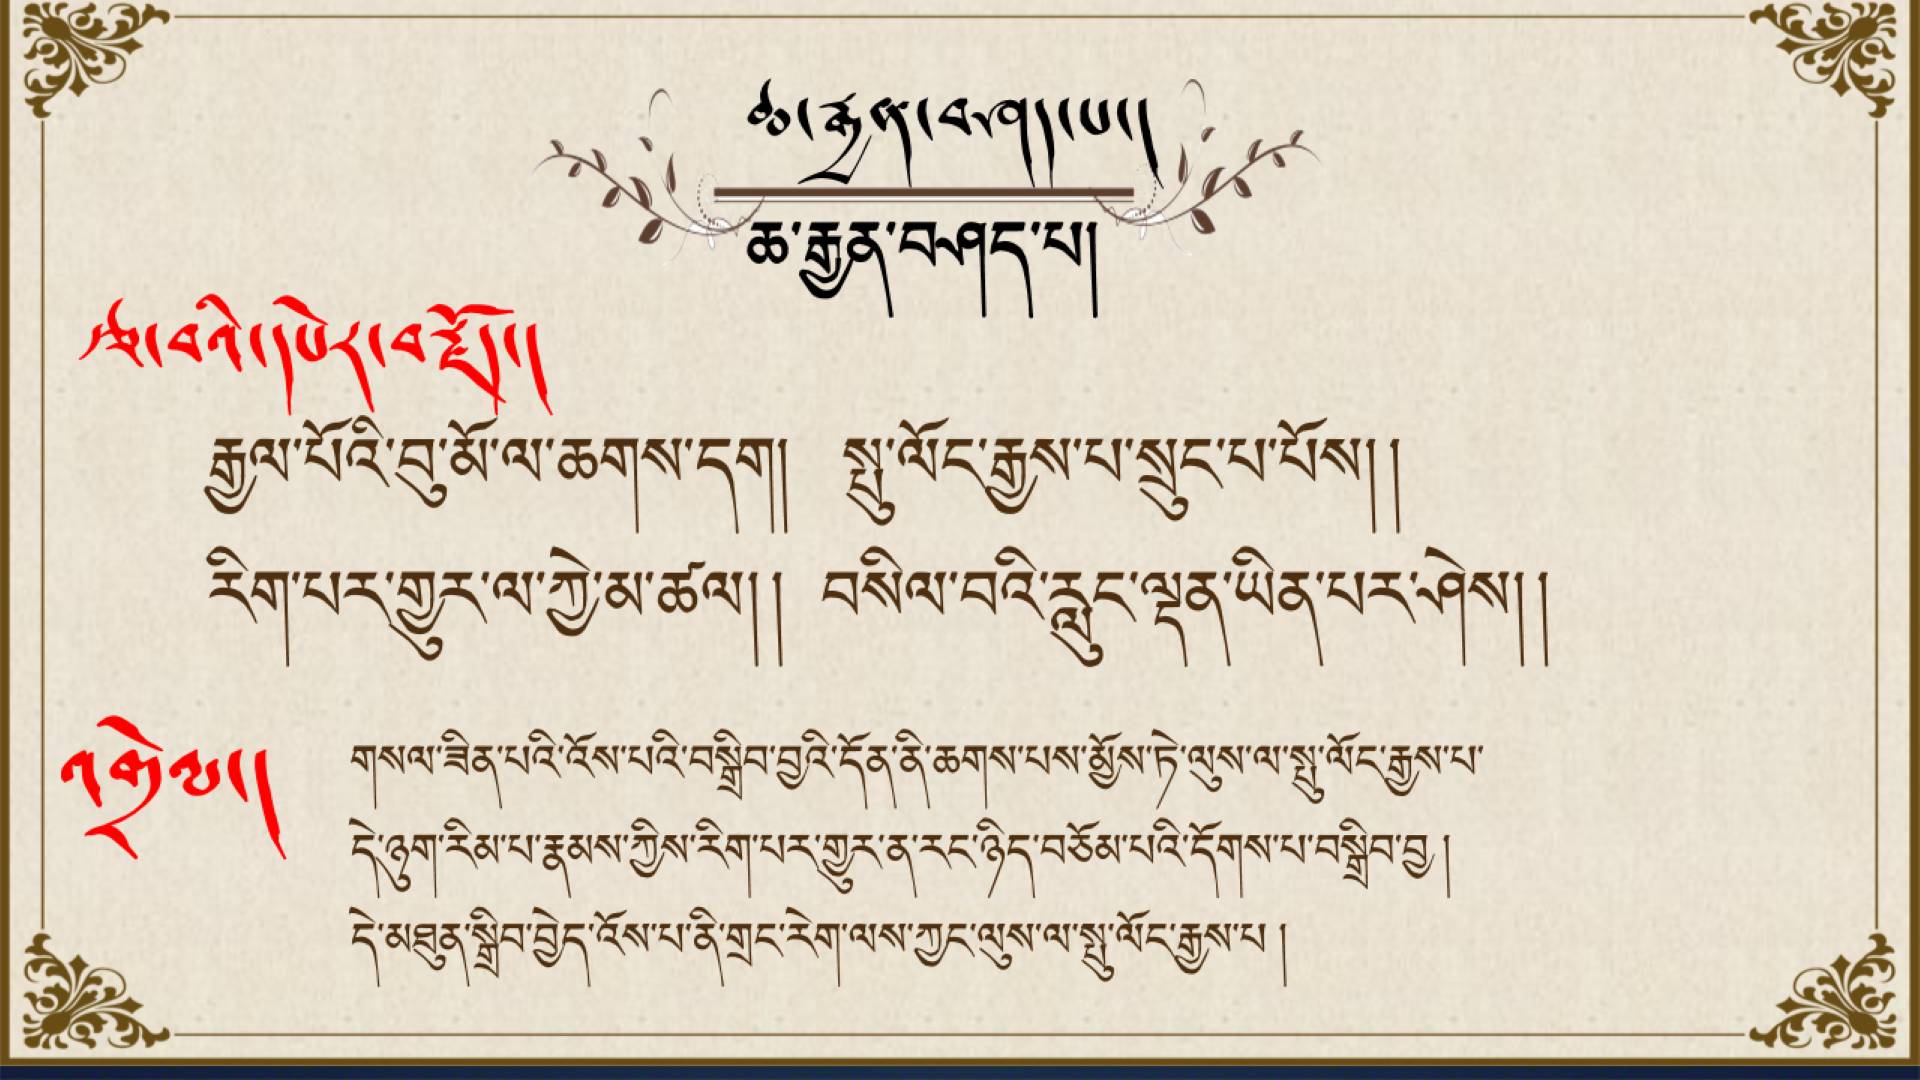 ཆ་རྒྱན་བཤད་པ།
ཆ་རྒྱན་བཤད་པ།
རྩ་བའི་དཔེར་བརྗོད།
རྒྱལ་པོའི་བུ་མོ་ལ་ཆགས་དག། སྤུ་ལོང་རྒྱས་པ་སྲུང་པ་པོས།།
རིག་པར་གྱུར་ལ་ཀྱེ་མ་ཚལ།། བསིལ་བའི་རླུང་ལྡན་ཡིན་པར་ཤེས།།
འགྲེལ་པ།
གསལ་ཟིན་པའི་འོས་པའི་བསྒྲིབ་བྱའི་དོན་ནི་ཆགས་པས་མྱོས་ཏེ་ལུས་ལ་སྤུ་ལོང་རྒྱས་པ་
དེ་ཉུག་རིམ་པ་རྣམས་ཀྱིས་རིག་པར་གྱུར་ན་རང་ཉིད་བཅོམ་པའི་དོགས་པ་བསྒྲིབ་བྱ །
དེ་མཐུན་སྒྲིབ་བྱེད་འོས་པ་ནི་གྲང་རེག་ལས་ཀྱང་ལུས་ལ་སྤུ་ལོང་རྒྱས་པ །